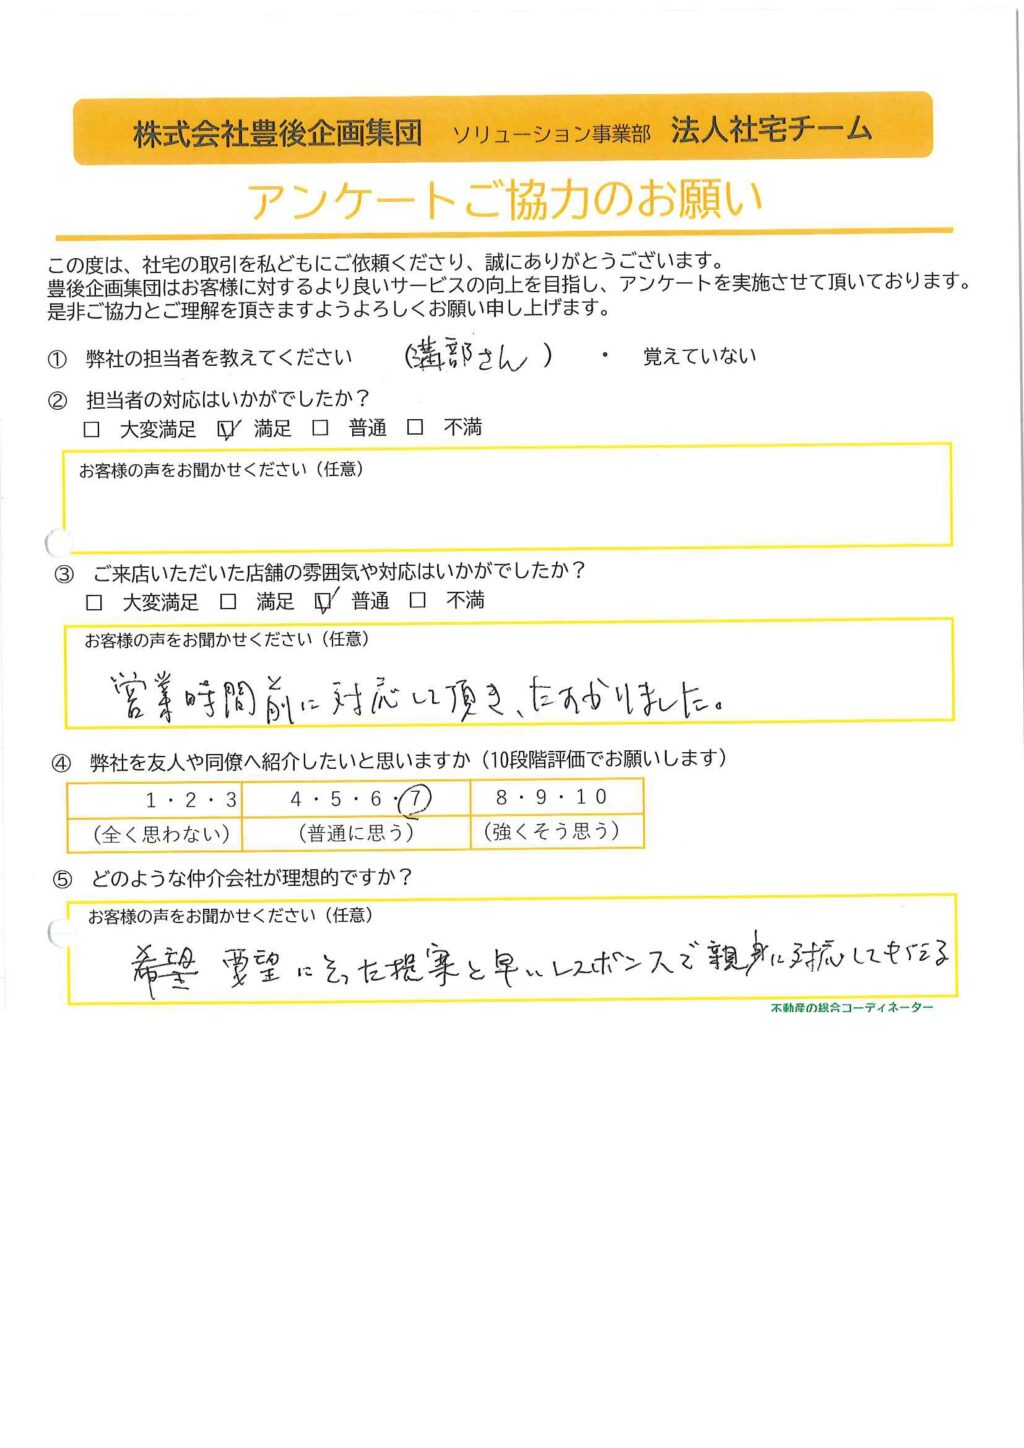 株式会社豊後企画集団 ソリューション事業部 法人社宅チーム
アンケートご協力のお願い
この度は、社宅の取引を私どもにご依頼くださり、誠にありがとうございます。
豊後企画集団はお客様に対するより良いサービスの向上を目指し、アンケートを実施させて頂いております。
是非ご協力とご理解を頂きますようよろしくお願い申し上げます。
① 弊社の担当者を教えてください （溝部さん ） ・ 覚えていない
② 担当者の対応はいかがでしたか？
□ 大変満足 ☑ 満足 □ 普通 □ 不満
お客様の声をお聞かせください（任意）
③ ご来店いただいた店舗の雰囲気や対応はいかがでしたか？
□ 大変満足 □ 満足 ☑ 普通 □ 不満
お客様の声をお聞かせください（任意）
営業時間前に対応して頂き、たすかりました。
④ 弊社を友人や同僚へ紹介したいと思いますか（10段階評価でお願いします）
1・2・3 4・5・6・7 8・9・10
（全く思わない） （普通に思う） （強くそう思う）
⑤ どのような仲介会社が理想的ですか？
お客様の声をお聞かせください（任意）
希望 要望にそった提案と早いレスポンスで親身に対応してもらえる
不動産の総合コーディネーター